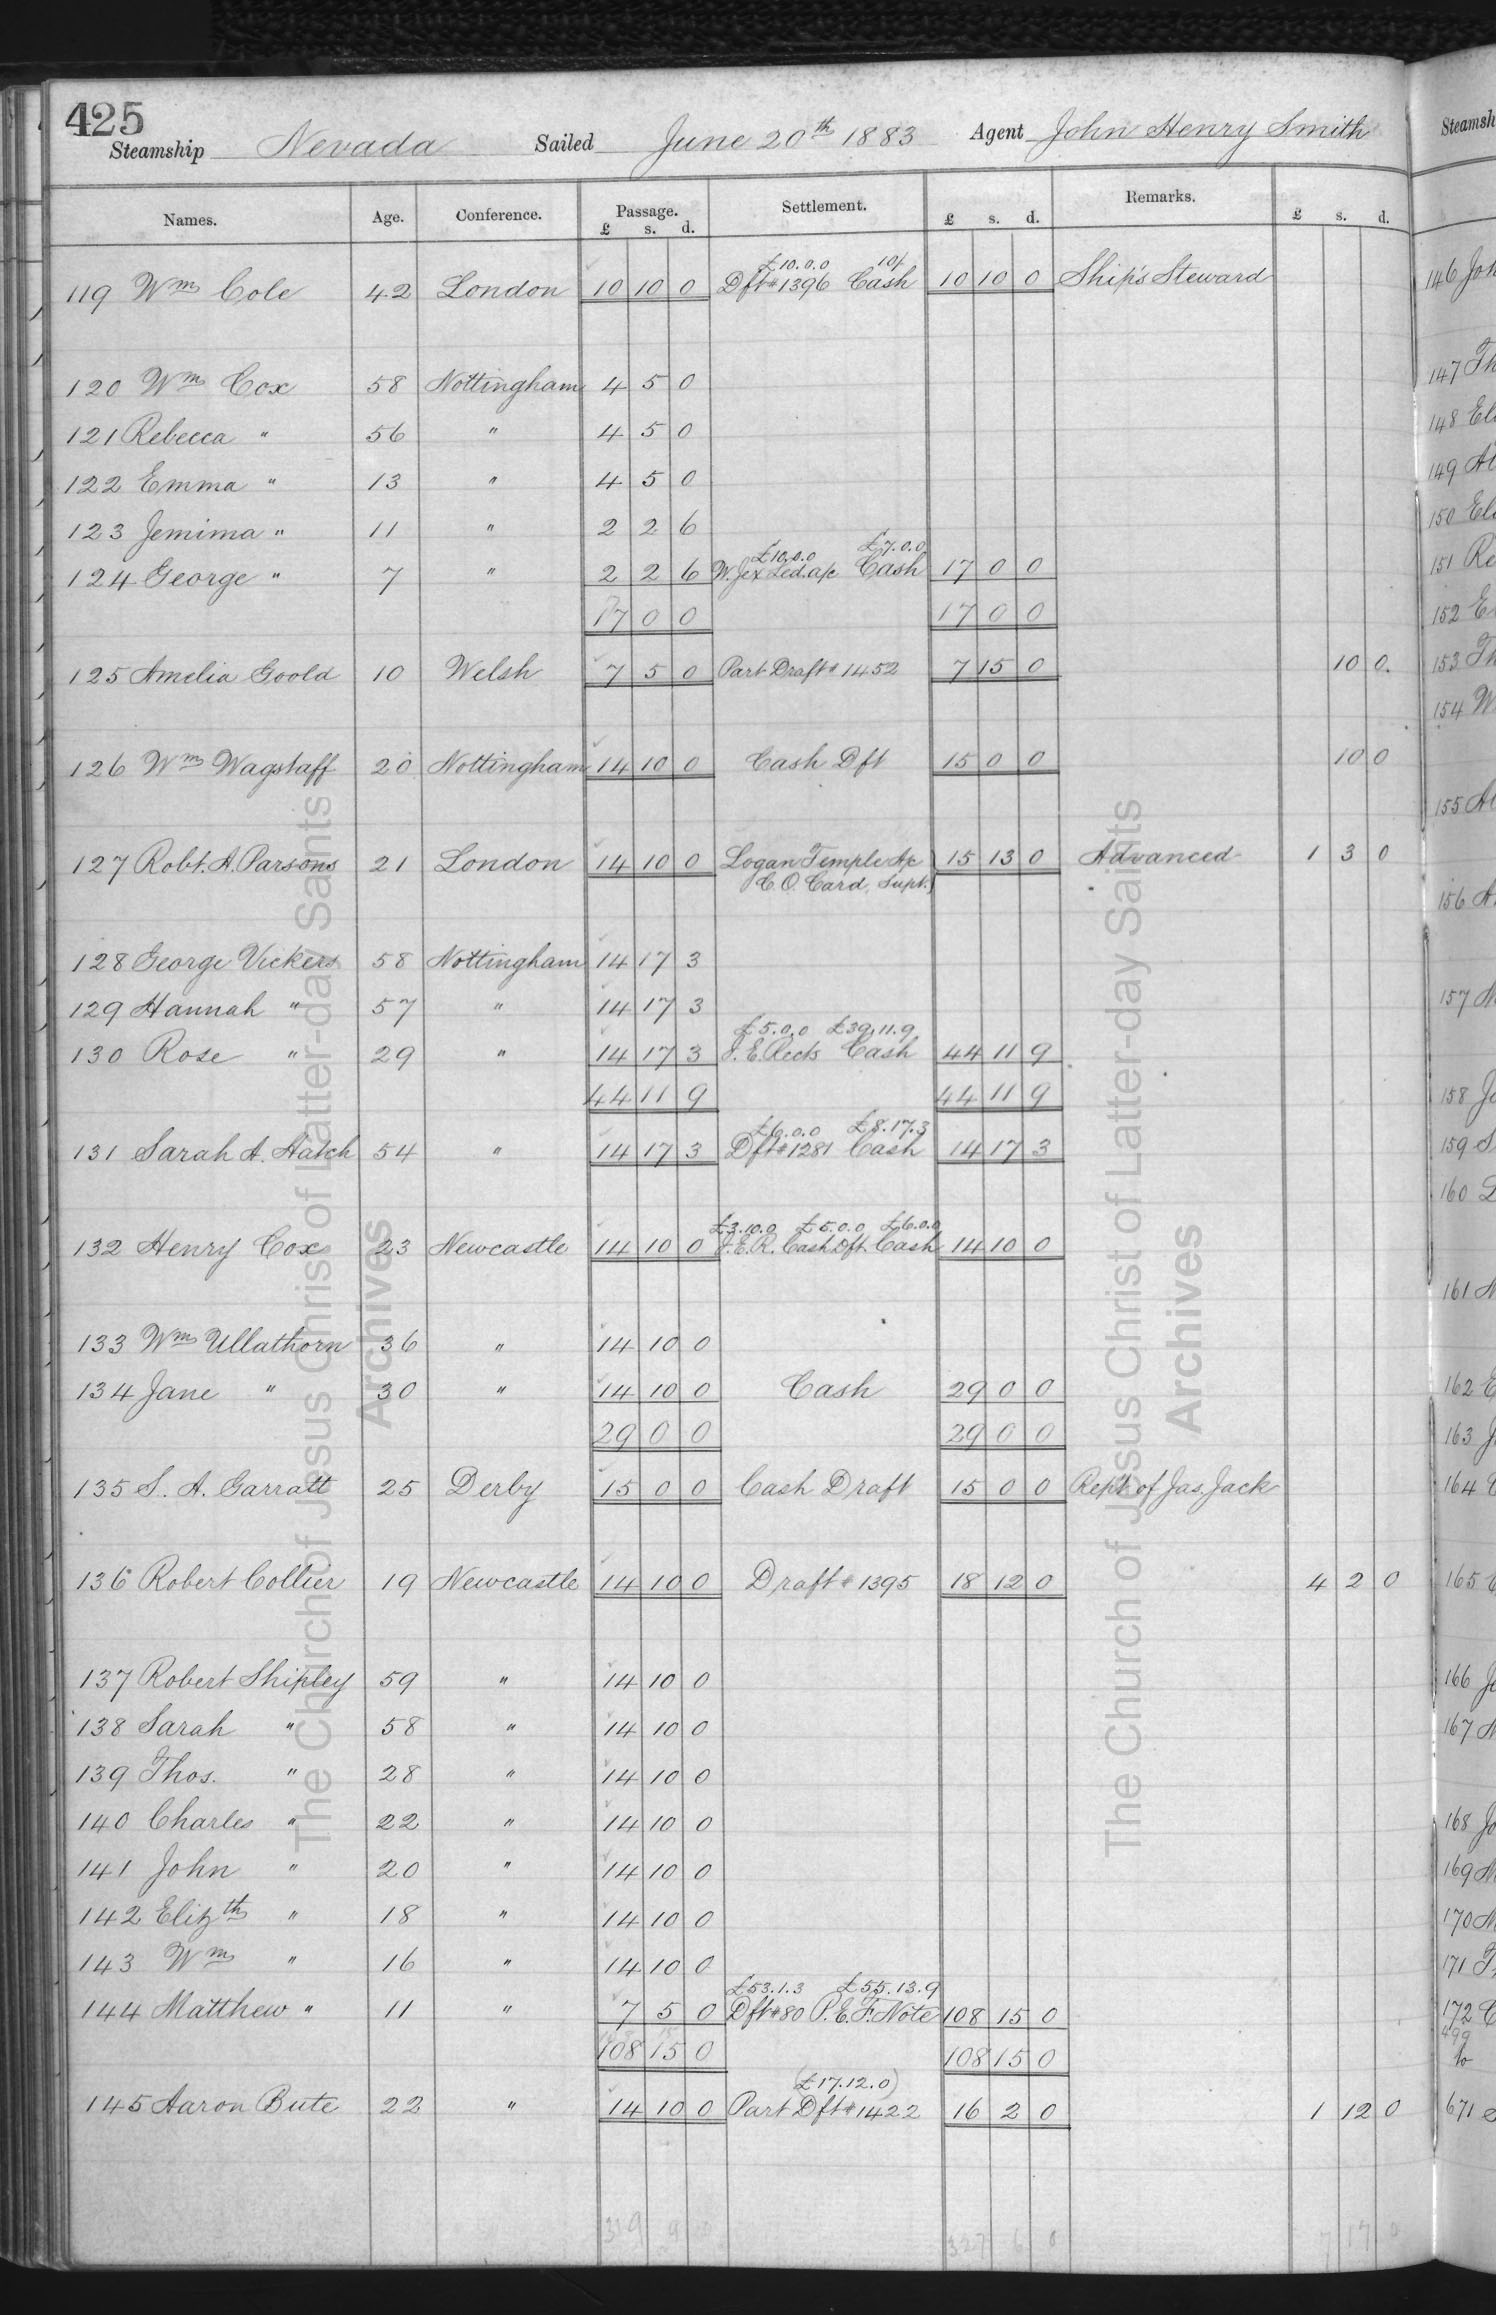 425
Steamship Nevada Sailed June 20th 1883 Agent John Henry Smith
Names. Age. Conference. Passage. £ s. d. Settlement. £ s. d. Remarks. £ s. d.
£10.0.0 10/
119 Wm Cole 42 London 10 10 0 Dft # 1396 Cash 10 10 0 Ship's Steward
120 Wm Cox 58 Nottingham 4 5 0
121 Rebecca " 56 " 4 5 0
122 Emma " 13 " 4 5 0
123 Jemima " 11 " 2 2 6
£10.0.0 £7.0.0
124 George " 7 " 2 2 6 W. Jex Led. a/c Cash 17 0 0
17 0 0 17 0 0
125 Amelia Goold 10 Welsh 7 5 0 Part Draft # 1452 7 15 0 10 0
126 Wm Wagstaff 20 Nottingham 14 10 0 Cash Dft 15 0 0 10 0
127 Robt. A. Parsons 21 London 14 10 0 Logan Temple A/c 15 13 0 Advanced 1 3 0
C. O. Card, Supt.
128 George Vickers 58 Nottingham 14 17 3
129 Hannah " 57 " 14 17 3
£5.0.0 £39.11.9
130 Rose " 29 " 14 17 3 J. E. Recks Cash 44 11 9
44 11 9 44 11 9
£6.0.0 £8.17.3
131 Sarah A. Hatch 54 " 14 17 3 Dft # 1281 Cash 14 17 3
£3.10.0 £5.0.0 £6.0.0
132 Henry Cox 23 Newcastle 14 10 0 J.E.R. Cash Dft. Cash 14 10 0
133 Wm Ullathorn 36 " 14 10 0
134 Jane " 30 " 14 10 0 Cash 29 0 0
29 0 0 29 0 0
135 S. A. Garratt 25 Derby 15 0 0 Cash Draft 15 0 0 Rept. of Jas. Jack
136 Robert Collier 19 Newcastle 14 10 0 Draft # 1395 18 12 0 4 2 0
137 Robert Shipley 59 " 14 10 0
138 Sarah " 58 " 14 10 0
139 Thos. " 28 " 14 10 0
140 Charles " 22 " 14 10 0
141 John " 20 " 14 10 0
142 Elizth " 18 " 14 10 0
143 Wm " 16 " 14 10 0
£53.1.3 £55.13.9
144 Matthew " 11 " 7 5 0 Dft # 80 P.E.F. Note 108 15 0
108 15 0 108 15 0
(£17.12.0)
145 Aaron Bute 22 " 14 10 0 Part Dft # 1422 16 2 0 1 12 0
319 9 327 6 0 7 17 0
The Church of Jesus Christ of Latter-day Saints
Archives
The Church of Jesus Christ of Latter-day Saints
Archives
Steamsh
146 Joh
147 Th
148 Eli
149 Al
150 Eli
151 Re
152 E
153 Th
154 W
155 Al
156 A
157
158 Jo
159 S
160
161
162 E
163 J
164
165
166 Jo
167
168 Jo
169
170
171 T
172
671